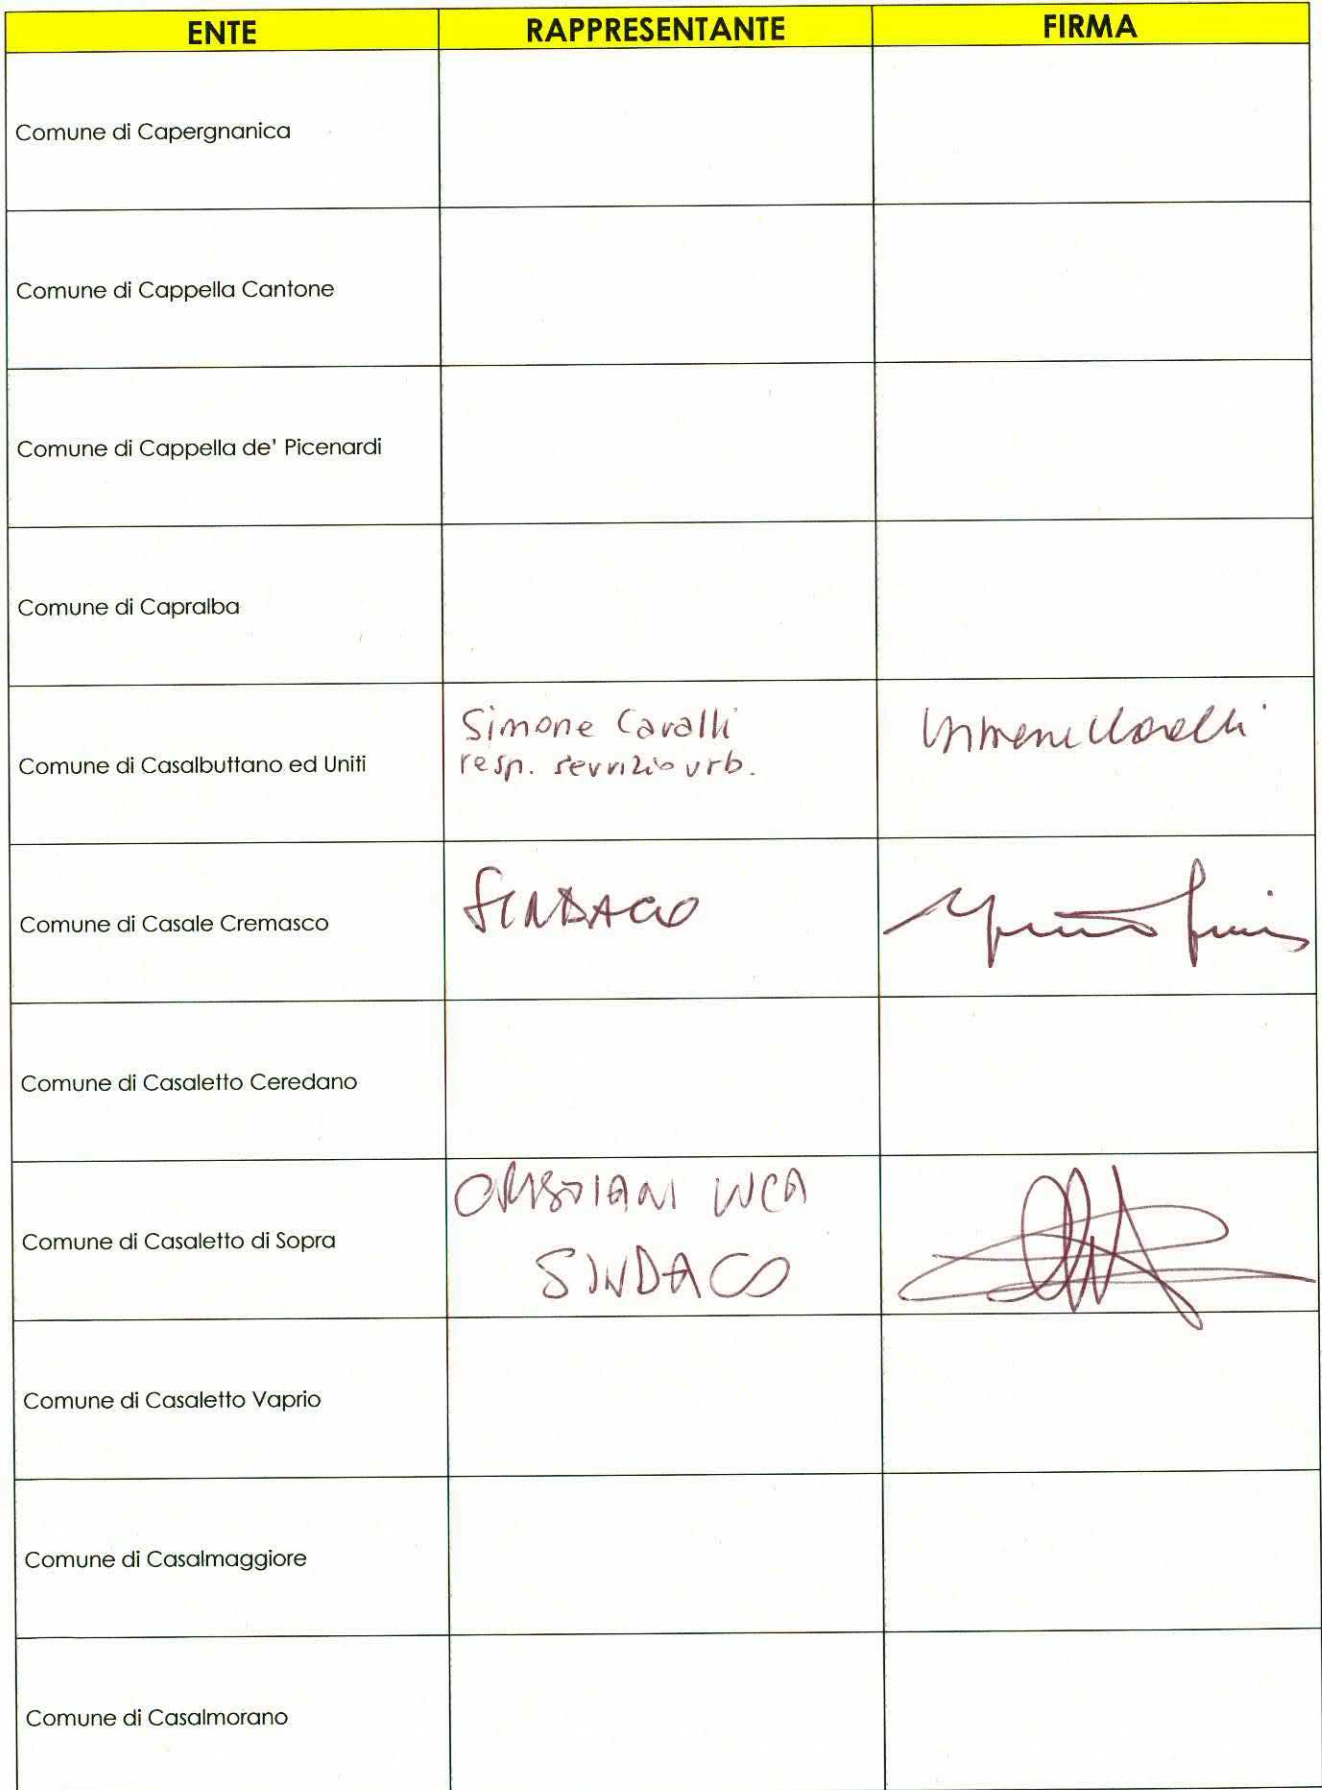 ENTE RAPPRESENTANTE FIRMA
Comune di Capergnanica
Comune di Cappella Cantone
Comune di Cappella de' Picenardi
Comune di Capralba
Simone Cavalli
Comune di Casalbuttano ed Uniti
resp. servizio urb.
Comune di Casale Cremasco SINDACO
Comune di Casaletto Ceredano
LUCA
Comune di Casaletto di Sopra
SINDACO
Comune di Casaletto Vaprio
Comune di Casalmaggiore
Comune di Casalmorano